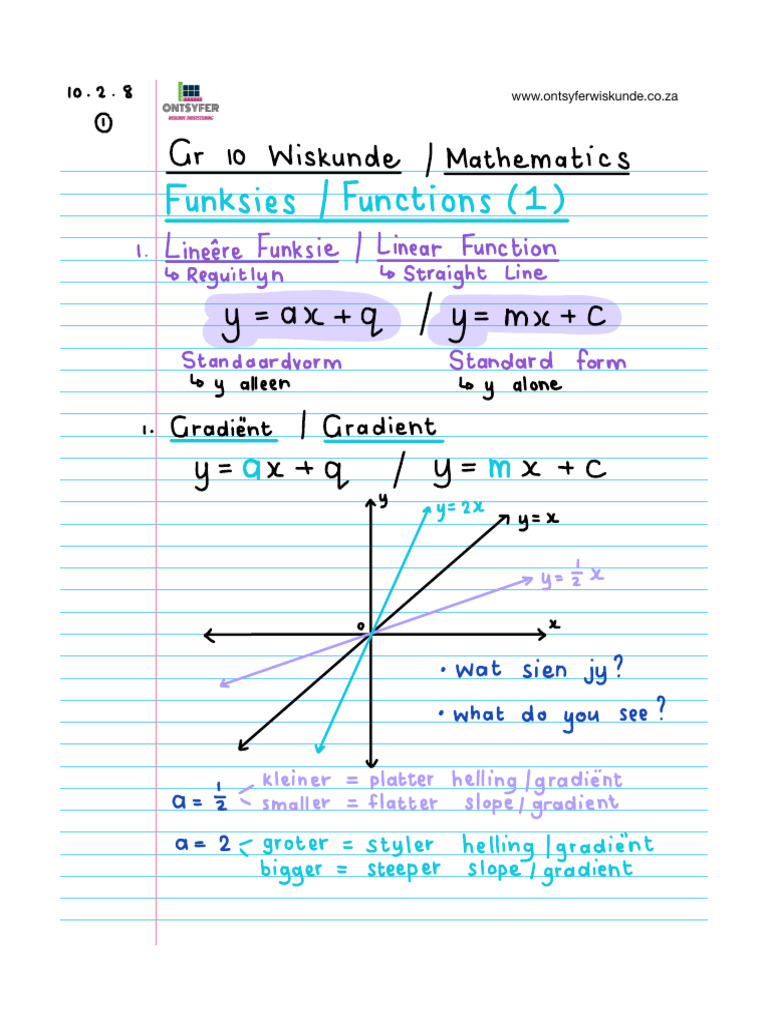 10.2.8
①
ONTSYFER
WISKUNDE ONDERSTEUNING
www.ontsyferwiskunde.co.za
Gr 10 Wiskunde / Mathematics
Funksies / Functions (1)
1. Lineêre Funksie / Linear Function
↳ Reguitlyn ↳ Straight Line
y = ax + q / y = mx + c
Standaardvorm Standard form
↳ y alleen ↳ y alone
1. Gradiënt / Gradient
y = ax + q / y = mx + c
y
y = 2x
y = x
y = 1/2 x
0
x
• Wat sien jy?
• What do you see?
a = 1/2
kleiner = platter helling/gradiënt
smaller = flatter slope/gradient
a = 2 < groter = styler helling/gradiënt
bigger = steeper slope/gradient